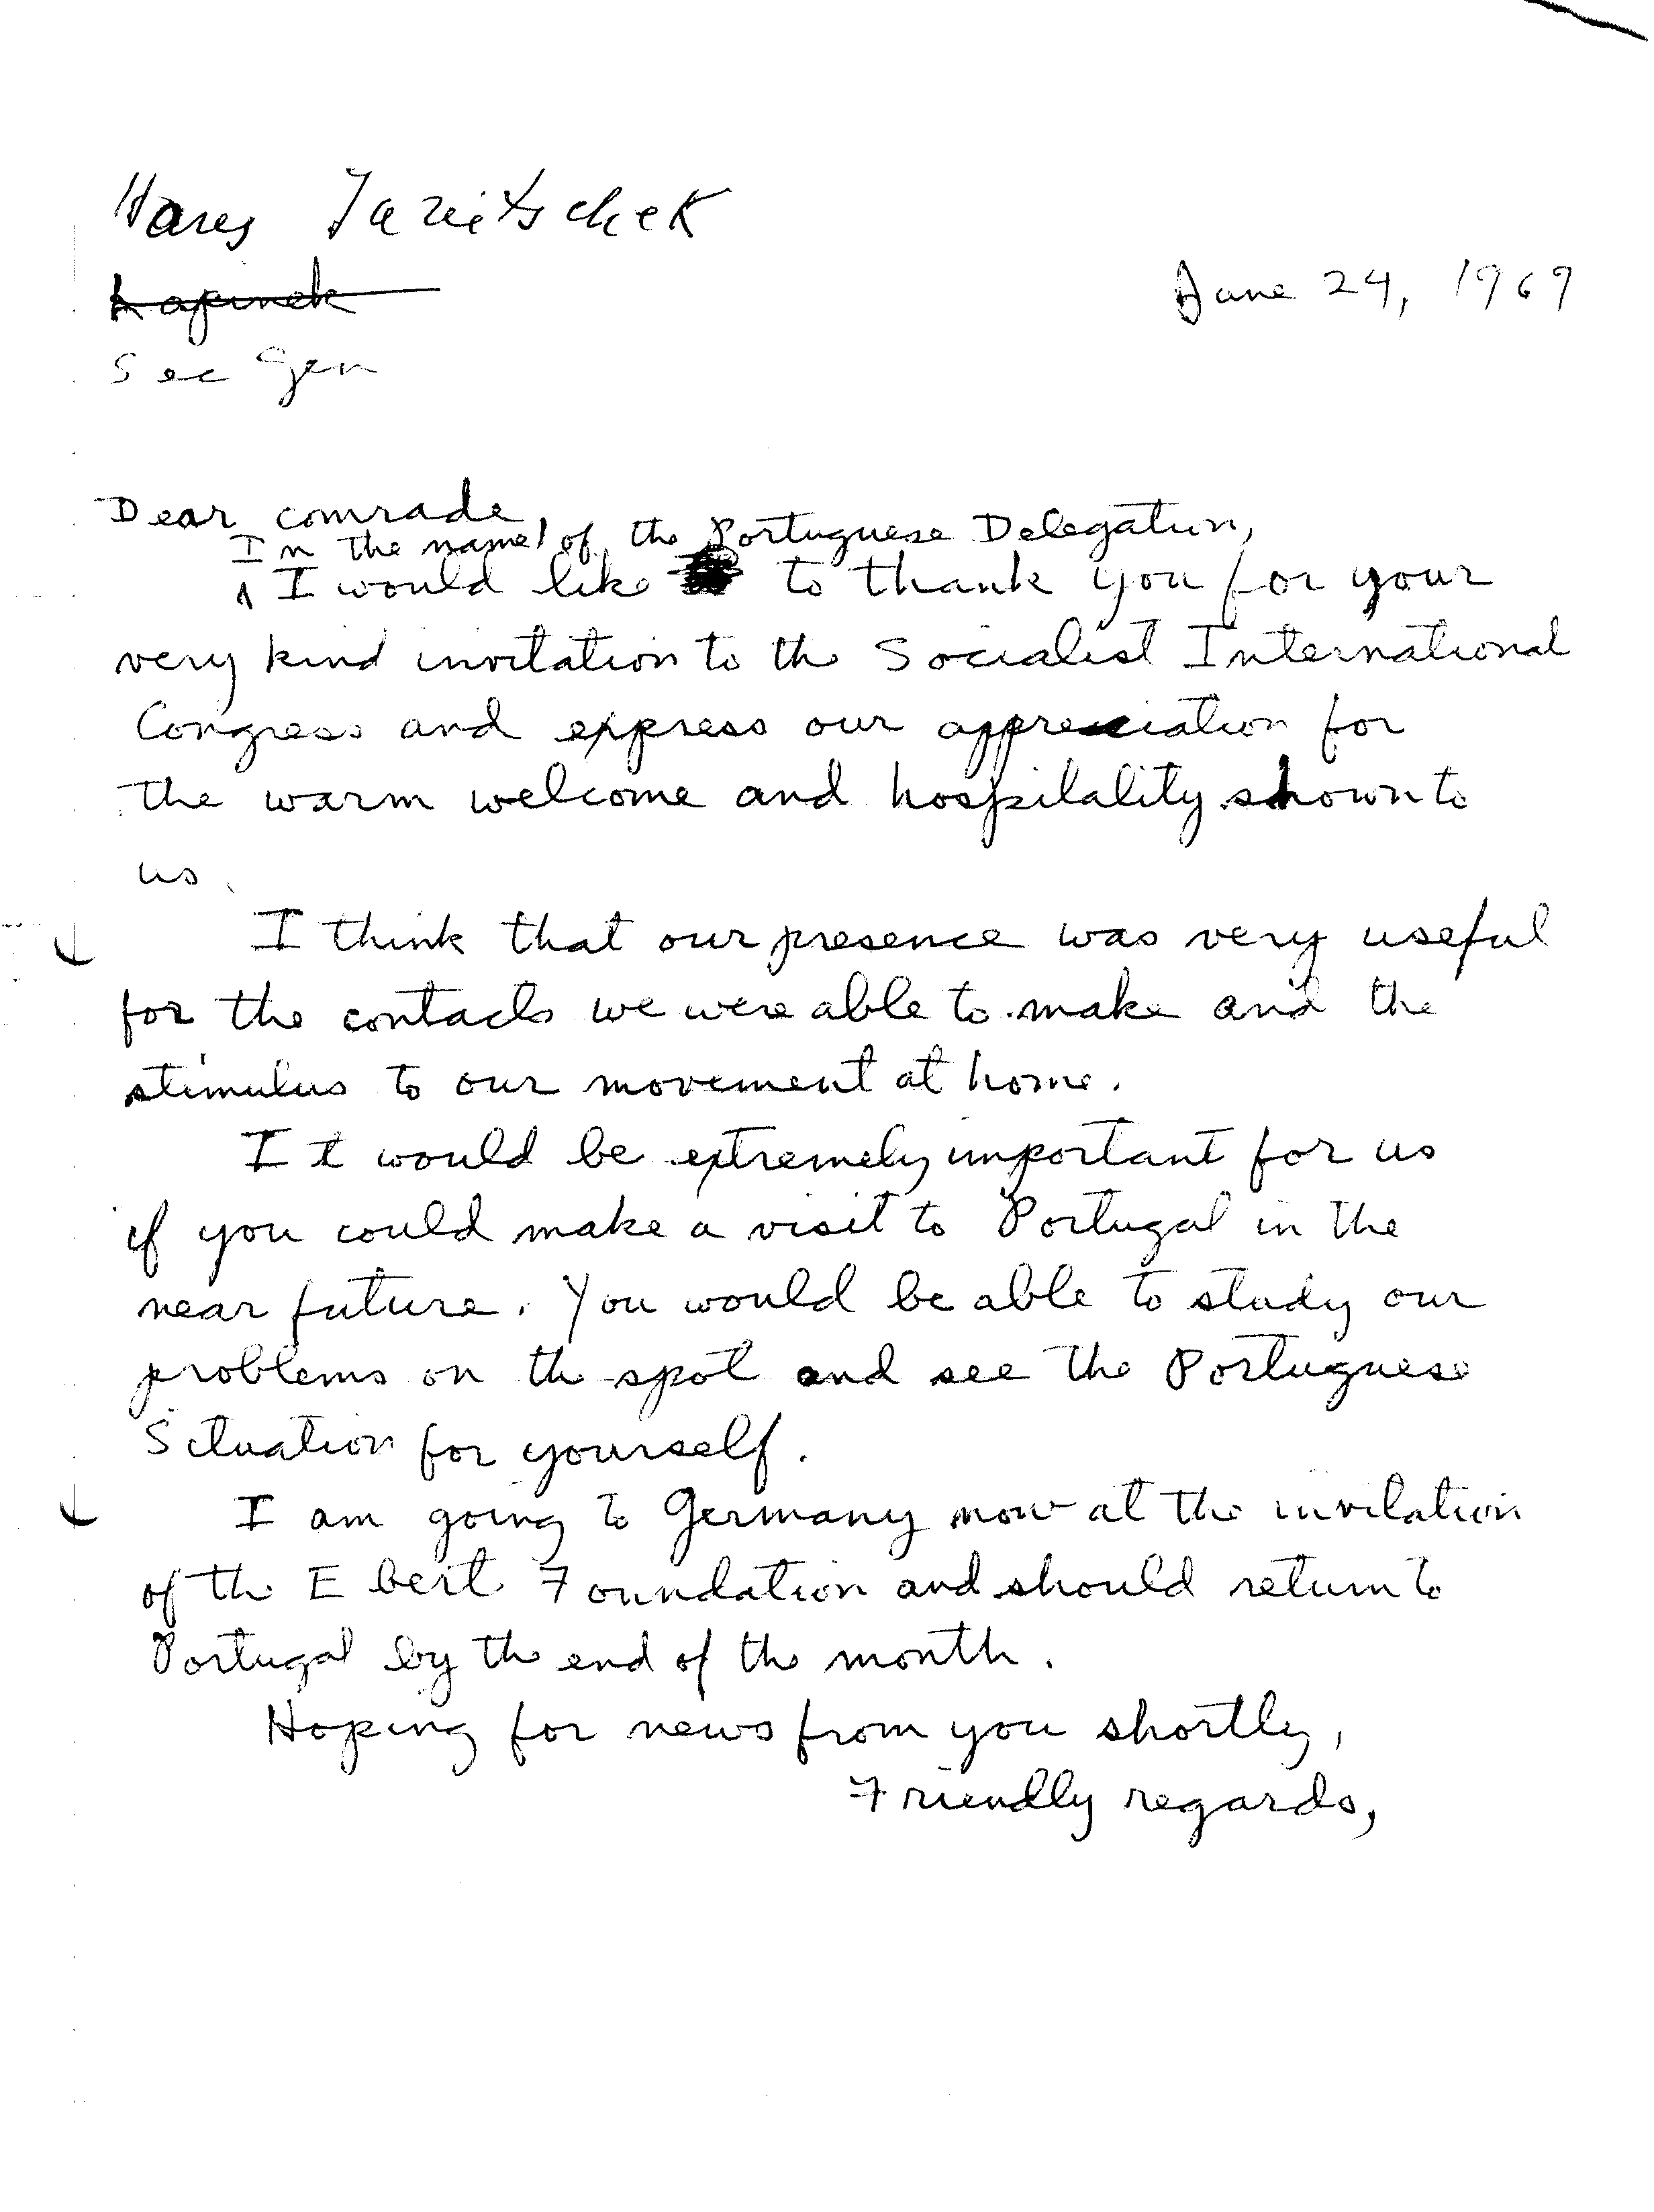 Hans Janitschek
June 24, 1969
Sec Gen
Dear comrade,
In the name of the Portuguese Delegation,
I would like to thank you for your
very kind invitation to the Socialist International
Congress and express our appreciation for
the warm welcome and hospitality shown to
us.
I think that our presence was very useful
for the contacts we were able to make and the
stimulus to our movement at home.
It would be extremely important for us
if you could make a visit to Portugal in the
near future. You would be able to study our
problems on the spot and see the Portuguese
Situation for yourself.
I am going to Germany now at the invitation
of the Ebert Foundation and should return to
Portugal by the end of the month.
Hoping for news from you shortly,
Friendly regards,